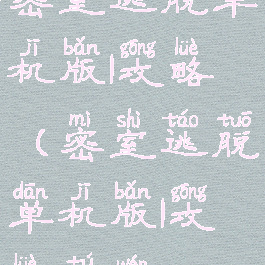 密室逃脱单
jī bǎn gōng lüè
机版|攻略
mì shì táo tuō
(密室逃脱
dān jī bǎn gōng
单机版|攻
lüè tú wén